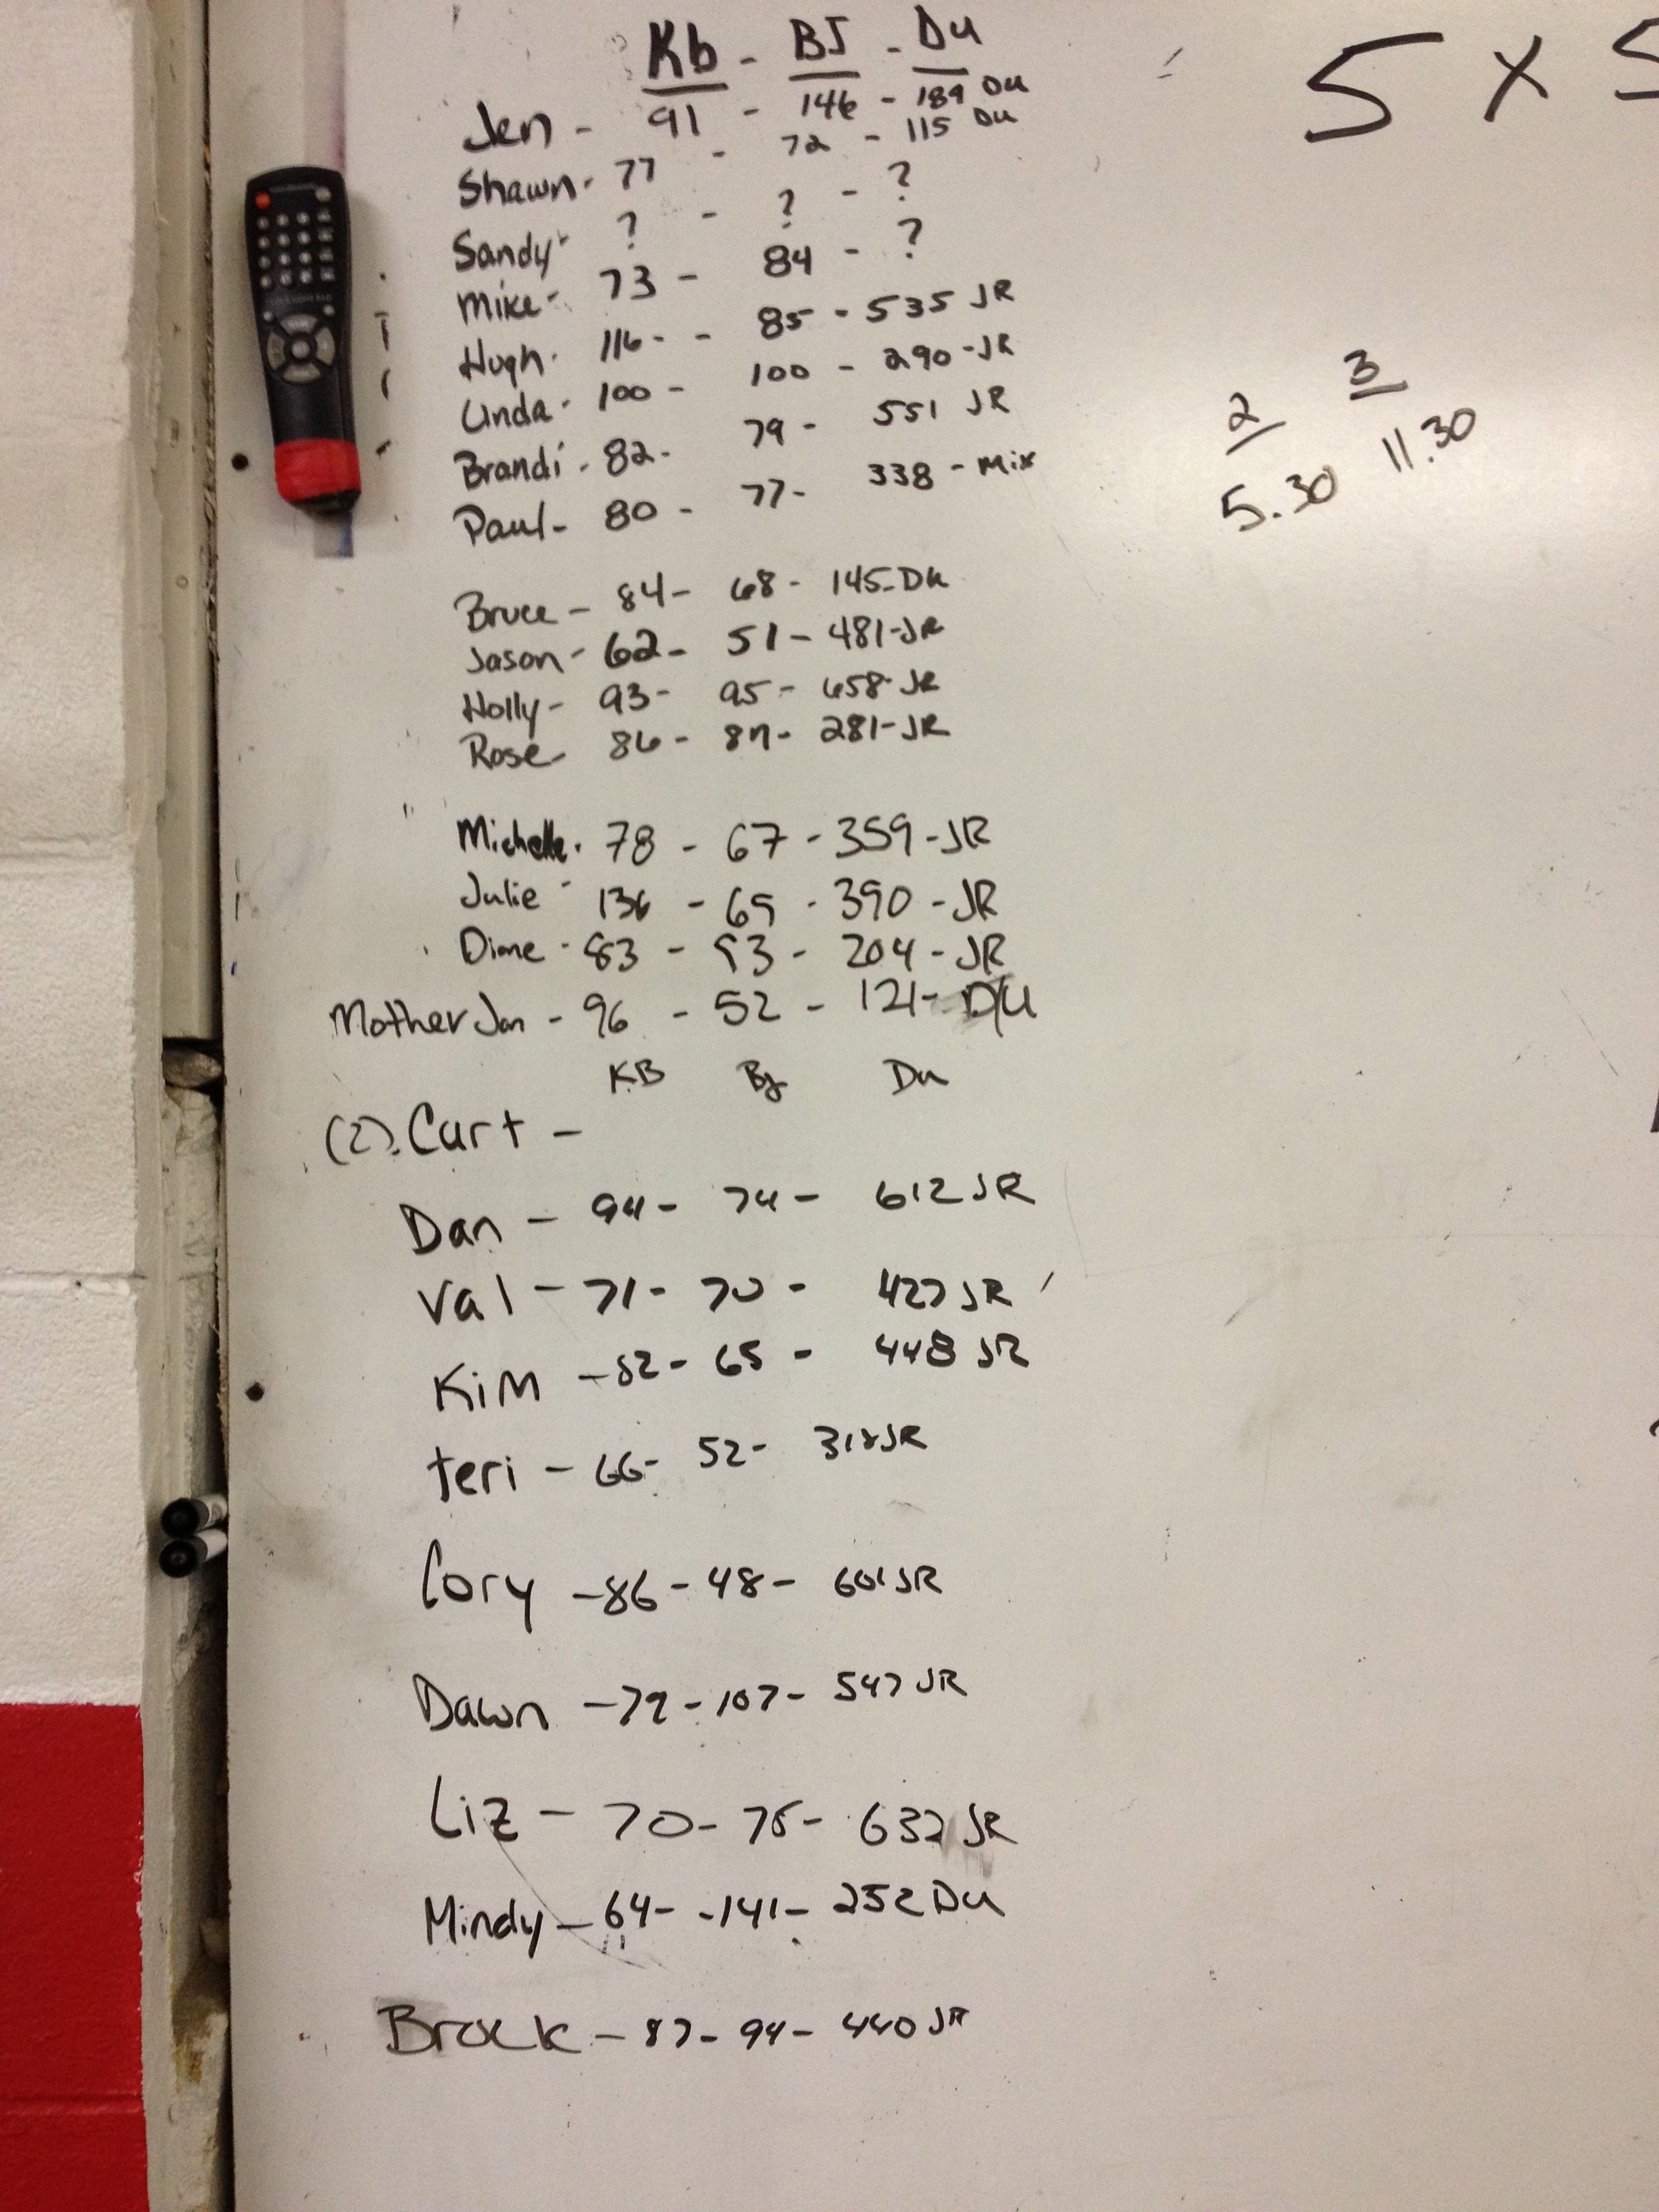 Kb - BJ - Du
Jen - 91 - 146 - 189 Du
Shawn - 77 - 72 - 115 Du
Sandy - ? - ? - ?
Mike - 73 - 84 - ?
Hugh - 116 - - 85 - 535 JR
Linda - 100 - 100 - 290 - JR
Brandi - 82 - 79 - 551 JR
Paul - 80 - 77 - 338 - Mix
Bruce - 84 - 68 - 145 - Du
Jason - 62 - 51 - 481 - JR
Holly - 93 - 95 - 658 - JR
Rose - 86 - 87 - 281 - JR
Michelle - 78 - 67 - 359 - JR
Julie - 136 - 69 - 390 - JR
Diane - 83 - 93 - 204 - JR
Mother Jan - 96 - 52 - 121 - D/U
KB BJ Du
(2). Curt -
Dan - 94 - 74 - 612 JR
Val - 71 - 70 - 427 JR
Kim - 82 - 65 - 448 JR
teri - 66 - 52 - JR
Cory - 86 - 48 - 601 JR
Dawn - 79 - 107 - 547 JR
Liz - 70 - 75 - 632 JR
Mindy - 64 - - 141 - 252 Du
Brock - 87 - 94 - 440 JR
5 x 5
2 3
5.30 11.30